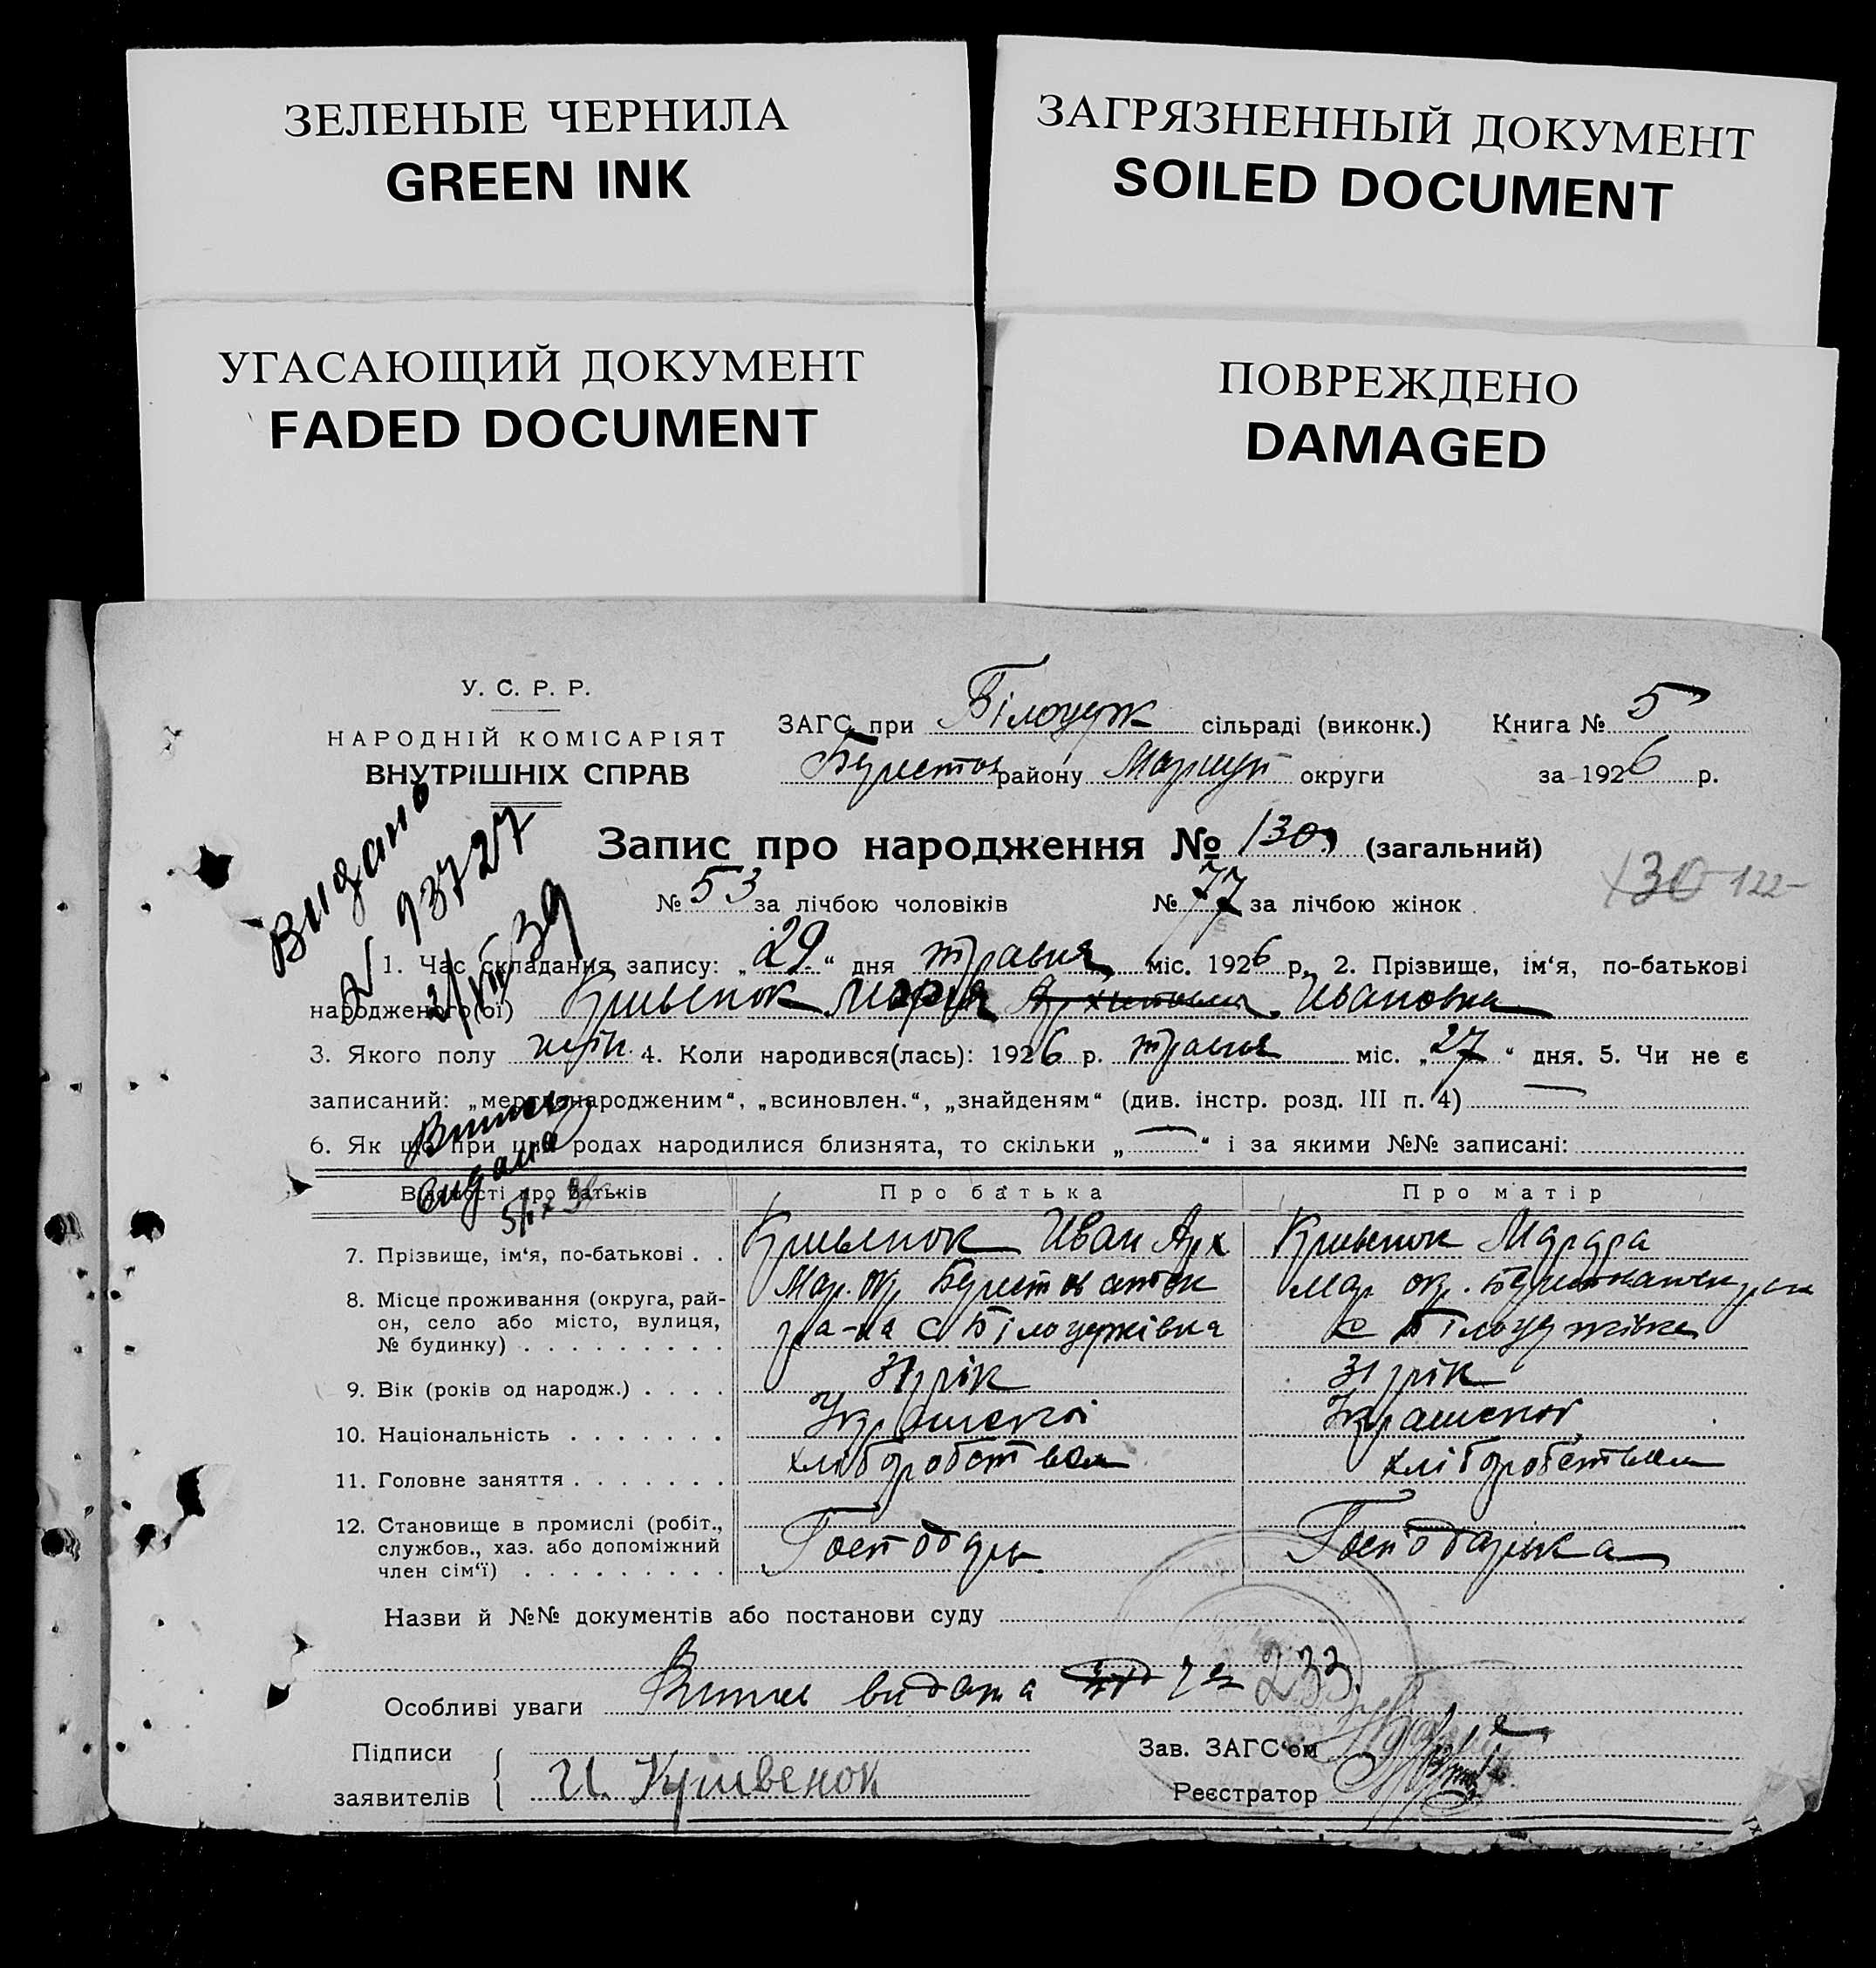 ЗЕЛЕНЫЕ ЧЕРНИЛА
GREEN INK
ЗАГРЯЗНЕННЫЙ ДОКУМЕНТ
SOILED DOCUMENT
УГАСАЮЩИЙ ДОКУМЕНТ
FADED DOCUMENT
ПОВРЕЖДЕНО
DAMAGED
У. С. Р. Р.
НАРОДНІЙ КОМІСАРІЯТ
ВНУТРІШНІХ СПРАВ
ЗАГС при Білоцерк сільраді (виконк.) Книга № 5
району Мариуп округи за 1926 р.
Видано
№ 93727
21/VII 39
Запис про народження № 130 (загальний)
130 122
№ 53 за лічбою чоловіків № 77 за лічбою жінок
1. Час складання запису: „29“ дня травня міс. 1926 р. 2. Прізвище, ім‘я, по-батькові
народженого(ої) Кривенок Мария Ивановна
3. Якого полу жін 4. Коли народився(лась): 1926 р. травня міс. „27“ дня. 5. Чи не є
записаний: „мертвонародженим“, „всиновлен.“, „знайденям“ (див. інстр. розд. III п. 4)
6. Як що при цих родах народилися близнята, то скільки „—“ і за якими №№ записані:
видана
Відомості про батьків
Про батька
Про матір
7. Прізвище, ім‘я, по-батькові . . Кривенок Иван Арх Кривенок
8. Місце проживання (округа, рай-он, село або місто, вулиця, № будинку) Мар. окр.
ра-на с Білоцерківка
Мар окр.
с Білоцерківка
9. Вік (років од народж.) . . . . 31 рік 31 рік
10. Національність
11. Головне заняття . . . . . . . хліборобством хліборобством
12. Становище в промислі (робіт.,
службов., хаз. або допоміжний
член сім‘ї) Господарь Господарька
Назви й №№ документів або постанови суду
Особливі уваги Випис видана за 233
Підписи
заявителів И. Кривенок
Зав. ЗАГС‘ом
Реєстратор